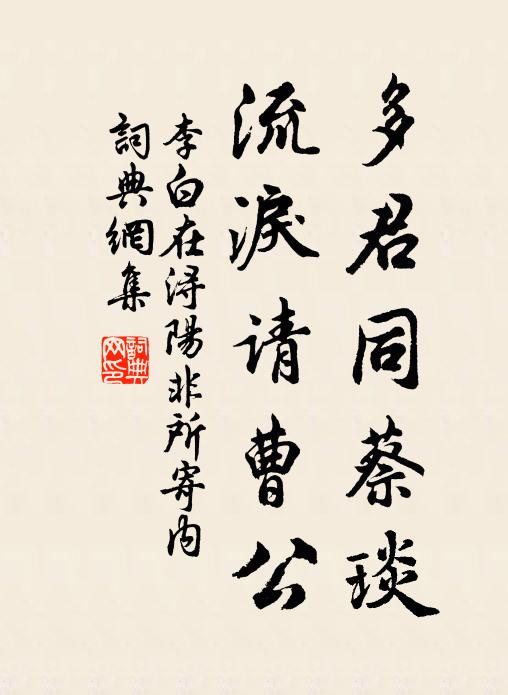 多君同蔡琰
流淚请曹公
李白在潯陽非所寄内
詞典網集
詞典網印